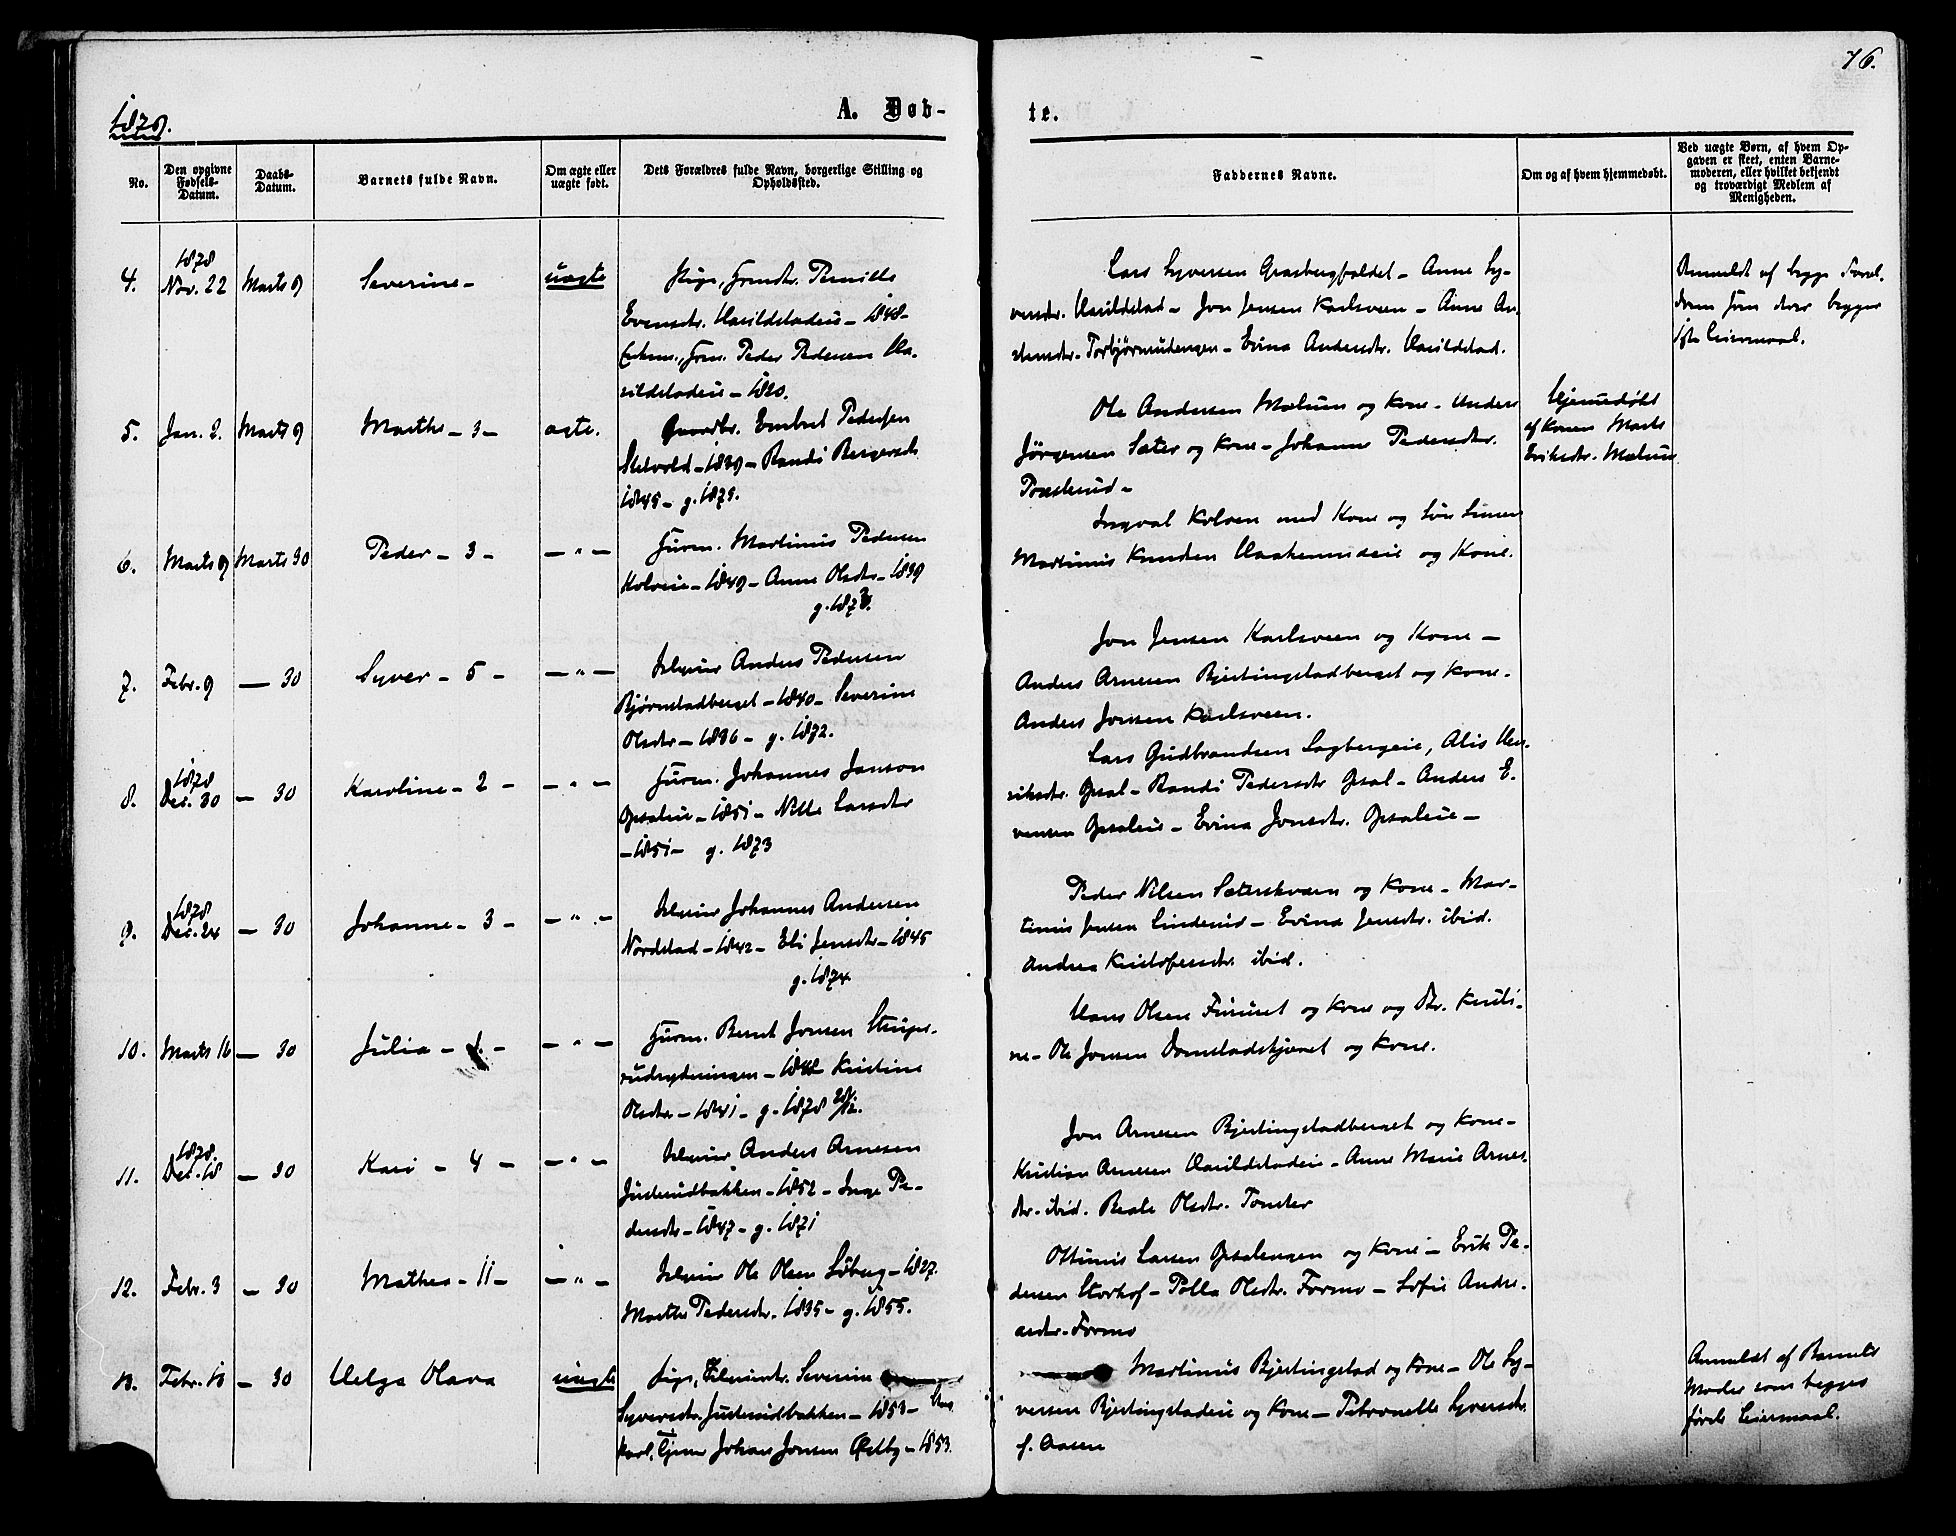 76.
1879.
A. Døb-
te.
No.
Den opgivne Fødsels-Datum.
Daabs-Datum.
Barnets fulde Navn.
Om ægte eller uægte født.
Dets Forældres fulde Navn, borgerlige Stilling og Opholdssted.
Faddernes Navne.
Om og af hvem hjemmedøbt.
Ved uægte Børn, af hvem Opgaven er skeet, enten Barnemoderen, eller hvilket bekjendt og troværdigt Medlem af Menigheden.
4.
1878
Nov. 22
Marts 9
Severine -
uægte
Pige, Pernille
Evensdtr. Harildstadeie - 1848 -
Peder Pedersen Ha-
rildstadeie - 1820.
Lars Syversen - Anne Sy-
versdtr. Harildstad - Jon Jensen Karlsveen - Anne
Evina Andersdtr. Harildstad.
Anmeldt af begge Foræl-
5.
Jan. 2.
Marts 9
Marthe - 3 -
ægte.
Gaardbr. Embret Pedersen
- 1839 - Randi Bergersdtr
1845 - g. 1875.
Ole Andersen Mælum og Kone - Anders
Jørgensen Sæter og Kone - Johanne Pedersdtr.
Hjemmedøbt
af Konen Marte
Eriksdtr. Mælum
6.
Marts 9
Marts 30
Peder - 3 -
- " -
Huusm. Martinus Pedersen
Kolveie - 1849 - Anne Olsdtr - 1839
Ingval Kolven med Kone og
Martinus Knudsen og Kone.
7.
Febr. 9
- 30
Syver - 5 -
- " -
Inderst Anders Pedersen
Bjørnstadberget - 1840 - Severine
Olsdtr - 1836 - g. 1872.
Jon Jensen Karlsveen og Kone -
Anders Arnesen Bjertingstadberget og Kone.
Anders Jonsen Karlsveen.
8.
1878
Dec. 30
- 30
Karoline - 2 -
- " -
Huusm. Johannes Janson
Opsaleie - 1851 - Nille Larsdtr
- 1851 - g. 1873
Lars Gudbrandsen Sagbergeie, Alis Hen-
riksdtr. Opsal - Randi Pedersdtr Opsal - Anders E-
vensen Opsaleie - Evina Jonsdtr. Opsaleie -
9.
1878
Dec. 24
- 30
Johanne - 3 -
- " -
Inderst Johannes Andersen
Nordstad - 1842 - Eli Jensdtr - 1845
g. 1874
Peder Nilsen og Kone - Mar-
tinus Jensen Linderud - Evina Jensdtr. ibid.
Andrea Kristofersdtr. ibid.
10.
Marts 16
- 30
Julia - 1 -
- " -
Huusm. Bernt Jonsen
Kristine
Olsdtr - 1841 - g. 1878 28/12.
Hans Olsen Furuset og Kone og Dtr. Kristi-
ne - Ole Jonsen og Kone.
11.
1878.
Dec. 18
- 30
Kari - 4 -
- " -
Inderst Anders Arnesen
Justerudbakken - 1852 - Inge Pe-
dersdtr - 1847 - g. 1871
Jon Arnesen Bjertingstadberget og Kone -
Kristian Arnesen Harildstadeie - Anne Marie Arnes-
dtr. ibid. Beate Olsdtr. Tomter
12.
Febr. 3
- 30
Mathea - 11 -
- " -
Inderst Ole Olsen Søberg - 1827.
Marthe Pedersdtr. 1835 - g. 1855.
Ottinius Larsen Opsalengen og Kone - Erik Pe-
dersen Storhof - Olsdtr. Formo - Sofie Andre-
asdtr. Formo
13.
Febr. 18
- 30
Helga Olava
uægte
Pige, Severine
Syversdtr. Justerudbakken - 1853 - Ung-
karl, Tjener Johan Jonsen Østby - 1853.
Martinus Bjertingstad og Kone - Ole Sy-
versen Bjertingstadeie og Kone - Petronelle Syversdtr.
f. Aasen
Anmeldt af Barnets
Moder som begges
første Leiermaal.